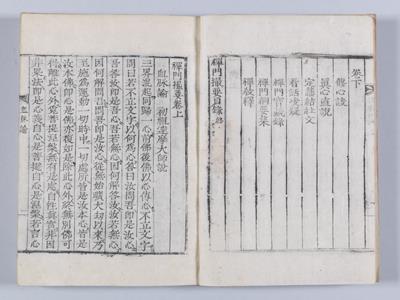 卷下
修心訣
眞心直說
定慧結社文
看話決疑
禪門寶藏錄
禪門綱要集
禪敎釋
禪門撮要目錄 終
禪門撮要卷上
血脉論 初祖達摩大師說
三界混起同歸一心前佛後佛以心傳心不立文字
問曰若不立文字以何爲心答曰汝問吾卽是汝心
吾答汝卽是吾心吾若無心因何解答汝汝若無心
因何解問吾問吾卽是汝心從無始曠大劫以來乃
至施爲運動一切時中一切處所皆是汝本心皆是
汝本佛卽心是佛亦復如是除此心外終無別佛可
得離此心外覓菩提涅槃無有是處自性眞實非因
非果法卽是心義自心是菩提自心是涅槃若言心
血脉論